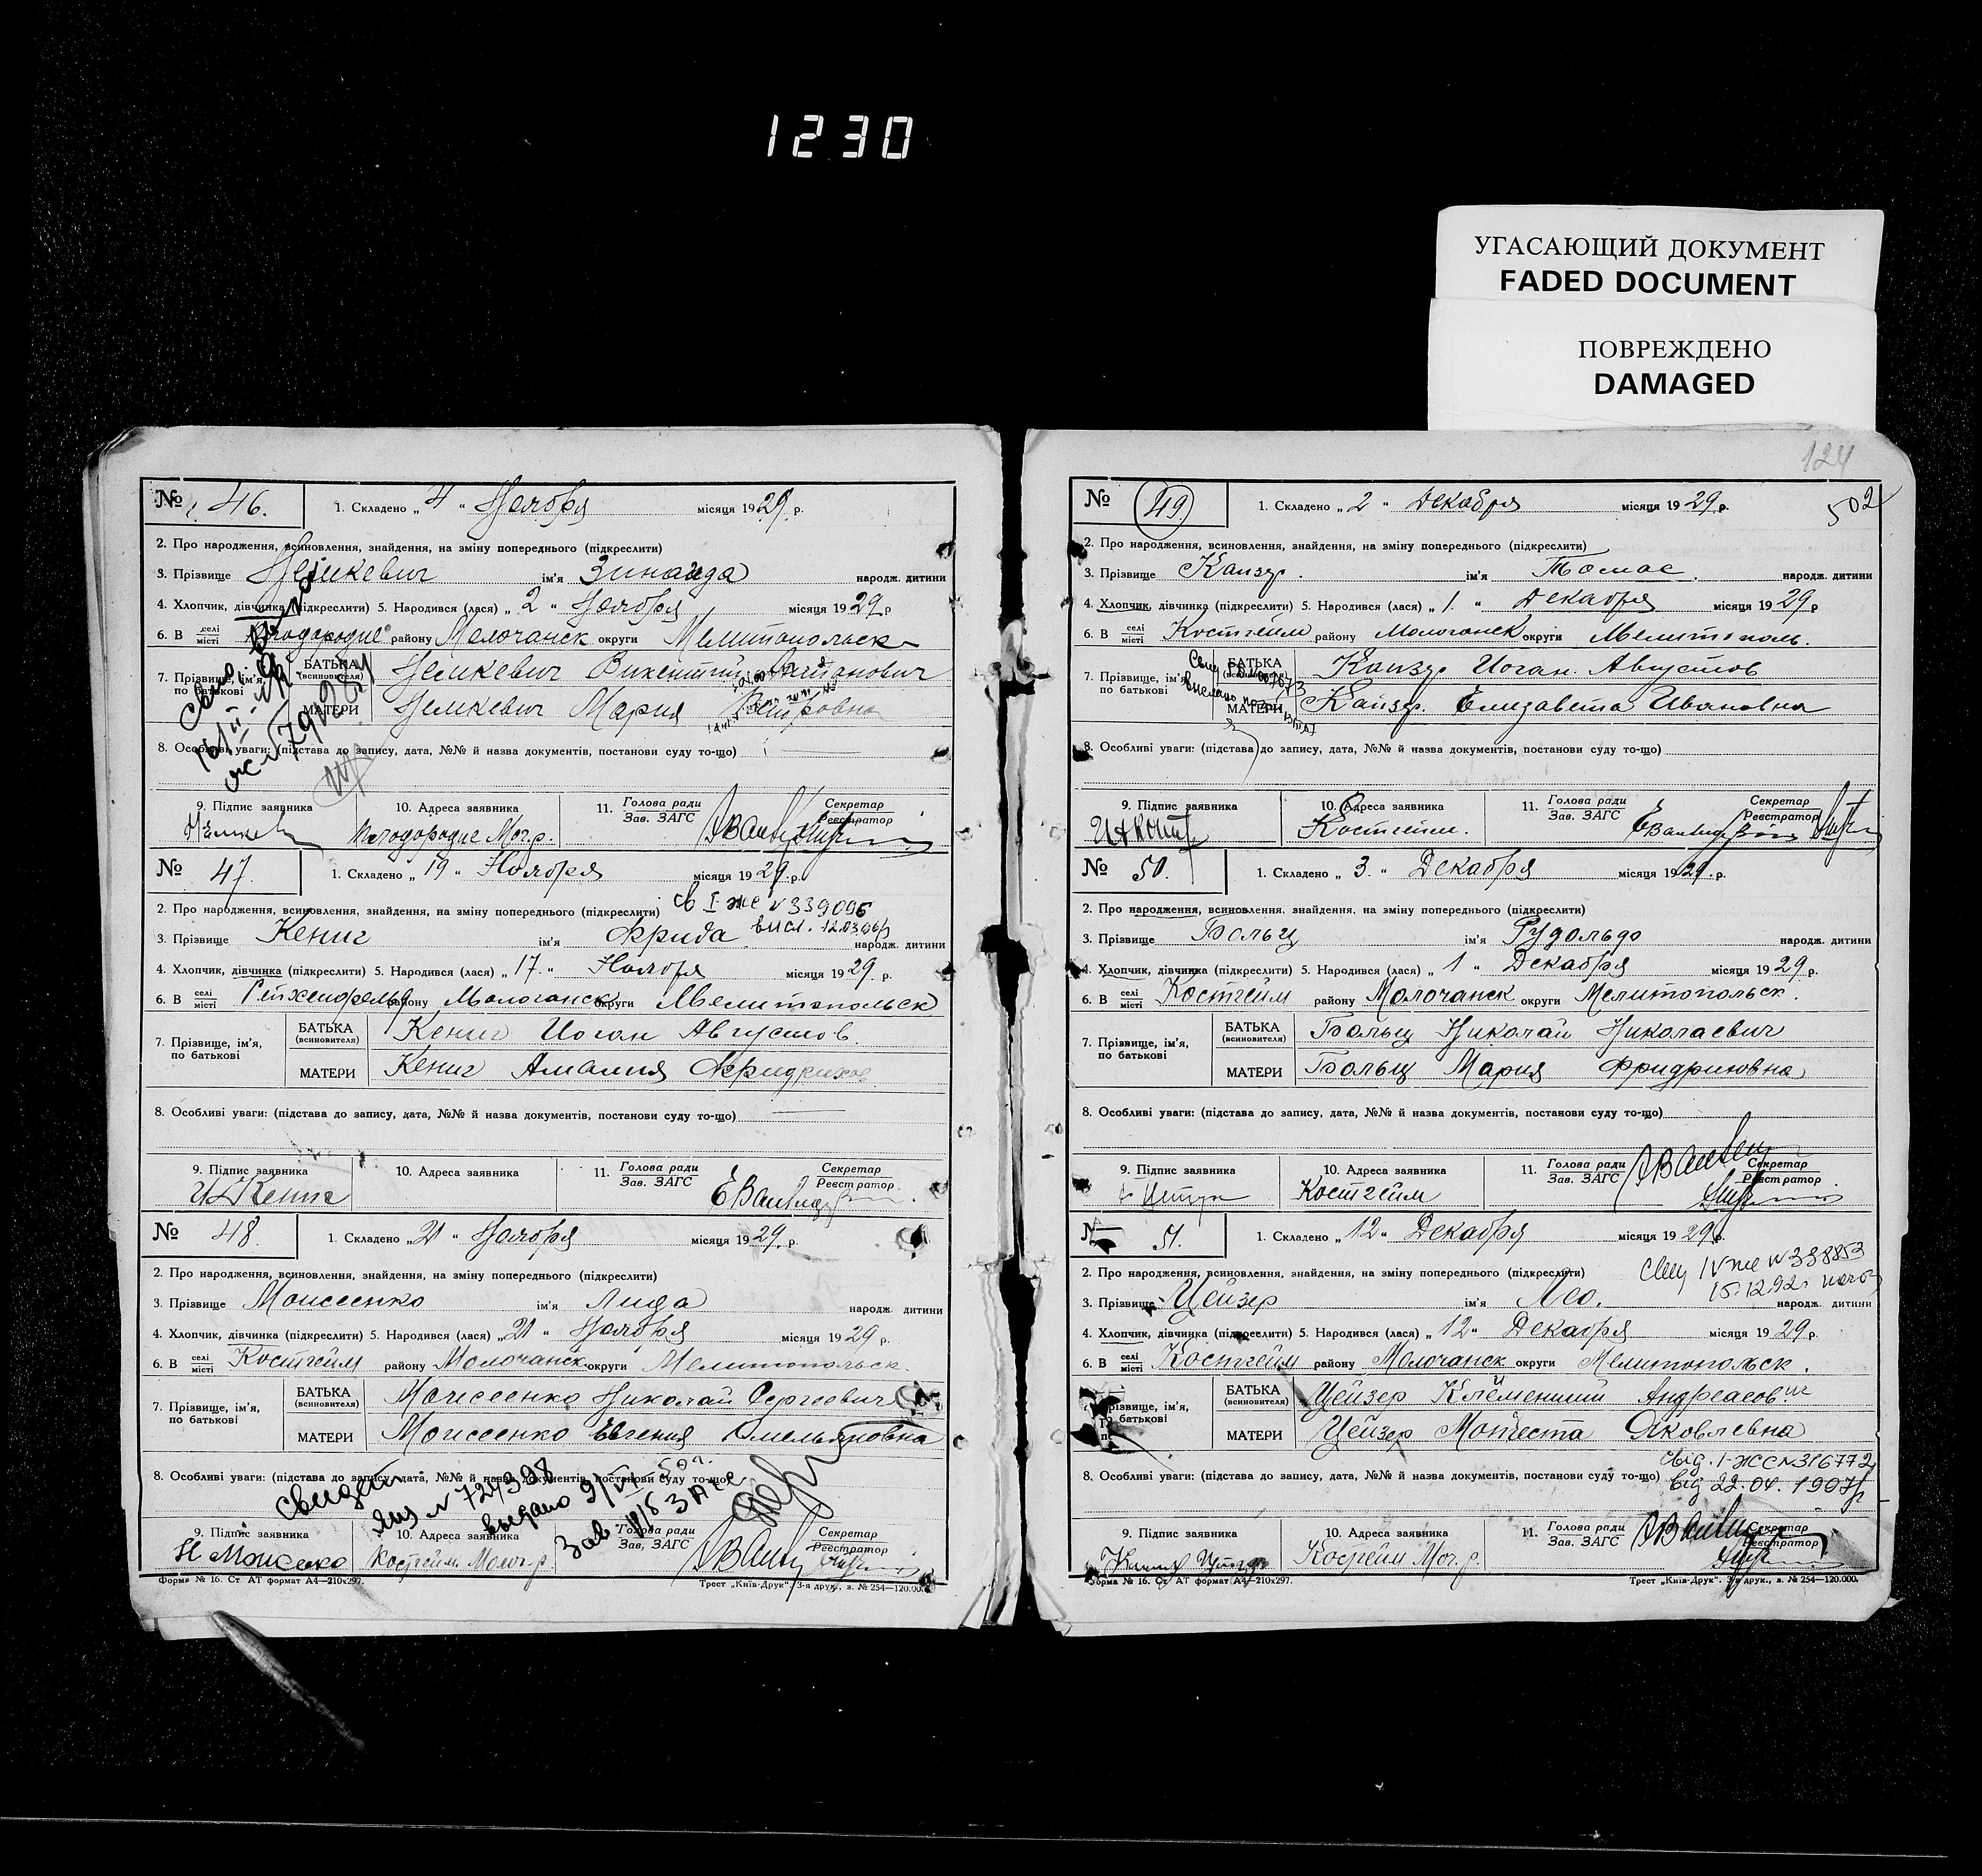 1230
УГАСАЮЩИЙ ДОКУМЕНТ
FADED DOCUMENT
ПОВРЕЖДЕНО
DAMAGED
№ 46. 1. Складено „ 4 “ Ноября місяця 1929 р.
2. Про народження, всиновлення, знайдення, на зміну попереднього (підкреслити)
3. Прізвище Немкевич ім'я Зинаида народж. дитини
4. Хлопчик, дівчинка (підкреслити) 5. Народився (лася) „ 2 “ Ноября місяця 1929 р
6. В селі місті району Молочанск округи Мелитопольск
7. Прізвище, ім'я, по батькові БАТЬКА (всиновителя) Немкевич Викентий
МАТЕРИ Немкевич Мария Петровна
8. Особливі уваги: (підстава до запису, дата, №№ й назва документів, постанови суду то-що)
9. Підпис заявника 10. Адреса заявника 11. Голова ради Зав. ЗАГС Секретар Реєстратор
№ 47. 1. Складено „ 19 “ Ноября місяця 1929 р.
2. Про народження, всиновлення, знайдення, на зміну попереднього (підкреслити) св I-же N 339006
3. Прізвище Кениг ім'я Фрида народж. дитини
4. Хлопчик, дівчинка (підкреслити) 5. Народився (лася) „ 17. “ Ноября місяця 1929 р.
6. В селі місті Рейхенфельд району Молочанск округи Мелитопольск
7. Прізвище, ім'я, по батькові БАТЬКА (всиновителя) Кениг Иоган Августов.
МАТЕРИ Кениг Амалия
8. Особливі уваги: (підстава до запису, дата, №№ й назва документів, постанови суду то-що)
9. Підпис заявника 10. Адреса заявника 11. Голова ради Зав. ЗАГС Секретар Реєстратор
№ 48. 1. Складено „ 21 “ Ноября місяця 1929 р.
2. Про народження, всиновлення, знайдення, на зміну попереднього (підкреслити)
3. Прізвище Моисеенко ім'я Лида народж. дитини
4. Хлопчик, дівчинка (підкреслити) 5. Народився (лася) „ 21 “ Ноября місяця 1929 р.
6. В селі місті Костгейм району Молочанск округи Мелитопольск.
7. Прізвище, ім'я, по батькові БАТЬКА (всиновителя) Моисеенко Николай Сергеевич
МАТЕРИ Моисеенко Евгения Емельяновна
8. Особливі уваги: (підстава до запису, дата, №№ й назва документів, постанови суду то-що)
9. Підпис заявника 10. Адреса заявника 11. Голова ради Зав. ЗАГС Секретар Реєстратор
Костгейм. Молоч. р
Форма № 16. Ст АТ формат А4—210х297. Трест „Київ-Друк“. 3-я друк., з. № 254—120.000.
124
502
№ 49 1. Складено „ 2 “ Декабря місяця 1929 р.
2. Про народження, всиновлення, знайдення, на зміну попереднього (підкреслити)
3. Прізвище Кайзер. ім'я Томас. народж. дитини
4. Хлопчик, дівчинка (підкреслити) 5. Народився (лася) „ 1. “ Декабря місяця 1929 р
6. В селі місті Костгейм району Молочанск округи Мелитополь.
7. Прізвище, ім'я, по батькові БАТЬКА (всиновителя) Кайзер Иоган. Августов
МАТЕРИ Кайзер. Елизавета Ивановна
8. Особливі уваги: (підстава до запису, дата, №№ й назва документів, постанови суду то-що)
9. Підпис заявника 10. Адреса заявника 11. Голова ради Зав. ЗАГС Секретар Реєстратор
Костгейм.
№ 50. 1. Складено „ 3. “ Декабря місяця 1929. р.
2. Про народження, всиновлення, знайдення, на зміну попереднього (підкреслити)
3. Прізвище Больц ім'я Рудольф народж. дитини
4. Хлопчик, дівчинка (підкреслити) 5. Народився (лася) „ 1 “ Декабря місяця 1929 р.
6. В селі місті Костгейм району Молочанск округи Мелитопольск.
7. Прізвище, ім'я, по батькові БАТЬКА (всиновителя) Больц Николай Николаевич
МАТЕРИ Больц Мария Фридриховна
8. Особливі уваги: (підстава до запису, дата, №№ й назва документів, постанови суду то-що)
9. Підпис заявника 10. Адреса заявника 11. Голова ради Зав. ЗАГС Секретар Реєстратор
Костгейм
№ 51. 1. Складено „ 12 “ Декабря місяця 1929 р.
2. Про народження, всиновлення, знайдення, на зміну попереднього (підкреслити)
3. Прізвище Цейзер ім'я Лео. народж. дитини
4. Хлопчик, дівчинка (підкреслити) 5. Народився (лася) „ 12 “ Декабря місяця 1929 р.
6. В селі місті Костгейм району Молочанск округи Мелитопольск.
7. Прізвище, ім'я, по батькові БАТЬКА (всиновителя) Цейзер Клементий Андреасович
МАТЕРИ Цейзер Яковлевна
Свід. I-ЖС N 316772
8. Особливі уваги: (підстава до запису, дата, №№ й назва документів, постанови суду то-що) від 22.04. 1997р
9. Підпис заявника 10. Адреса заявника 11. Голова ради Зав. ЗАГС Секретар Реєстратор
Костгейм Мол. р.
Форма № 16. Ст АТ формат А4—210х297. Трест „Київ-Друк“. 3-я друк., з. № 254—120.000.